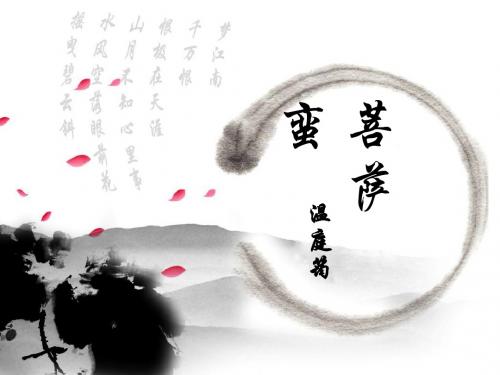 菩萨
蛮
温庭筠
梦江南
千万恨
恨极在天涯
山月不知心里事
水风空落眼前花
摇曳碧云斜